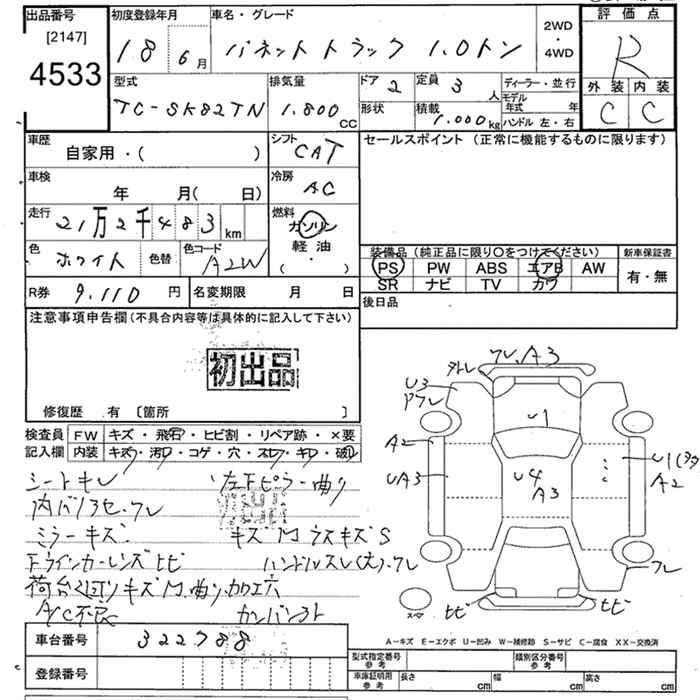 出品番号
[2147]
4533
初度登録年月
18 6月
車名・グレード
バネットトラック 1.0トン
2WD
・
4WD
評価点
R
外装 内装
C C
型式
TC-SK82TN
排気量
1.800 CC
ドア 2
定員 3 人
ディーラー・並行
モデル年式 年
ハンドル 左・右
形状
積載
1.000 kg
車歴
自家用・( )
シフト
CAT
セールスポイント (正常に機能するものに限ります)
車検
年 月( 日)
冷房
AC
走行
21万2千483 km
燃料
ガソリン
軽油
( ・ )
色
ホワイト
色替
色コード
A2W
装備品(純正品に限り○をつけてください)
新車保証書
PS PW ABS エアB AW
SR ナビ TV カワ
有・無
R券 9.110 円
名変期限 月 日
後日品
注意事項申告欄(不具合内容等は具体的に記入して下さい)
初出品
修復歴 有 [箇所 ]
検査員
記入欄
FW キズ・飛石・ヒビ割・リペア跡・×要
内装 キズ・汚れ・コゲ・穴・スレ・キレ・破れ
シートキレ 左下ピラー曲り
ミラーキズ キズM ラスキズS
ドラインカーレンズヒビ ハンドルスレ(大)
A/C不良 カンバン
外レ ワレ A3
U3
U1
A2
UA3
U4
A3
U1
A2
ワレ
ヒビ ヒビ
A-キズ E-エクボ U-凹み W-補修跡 S-サビ C-腐食 XX-交換済
車台番号 322788
登録番号
型式指定番号
参考
類別区分番号
参考
車庫証明用
参考
長さ cm 幅 cm 高さ cm